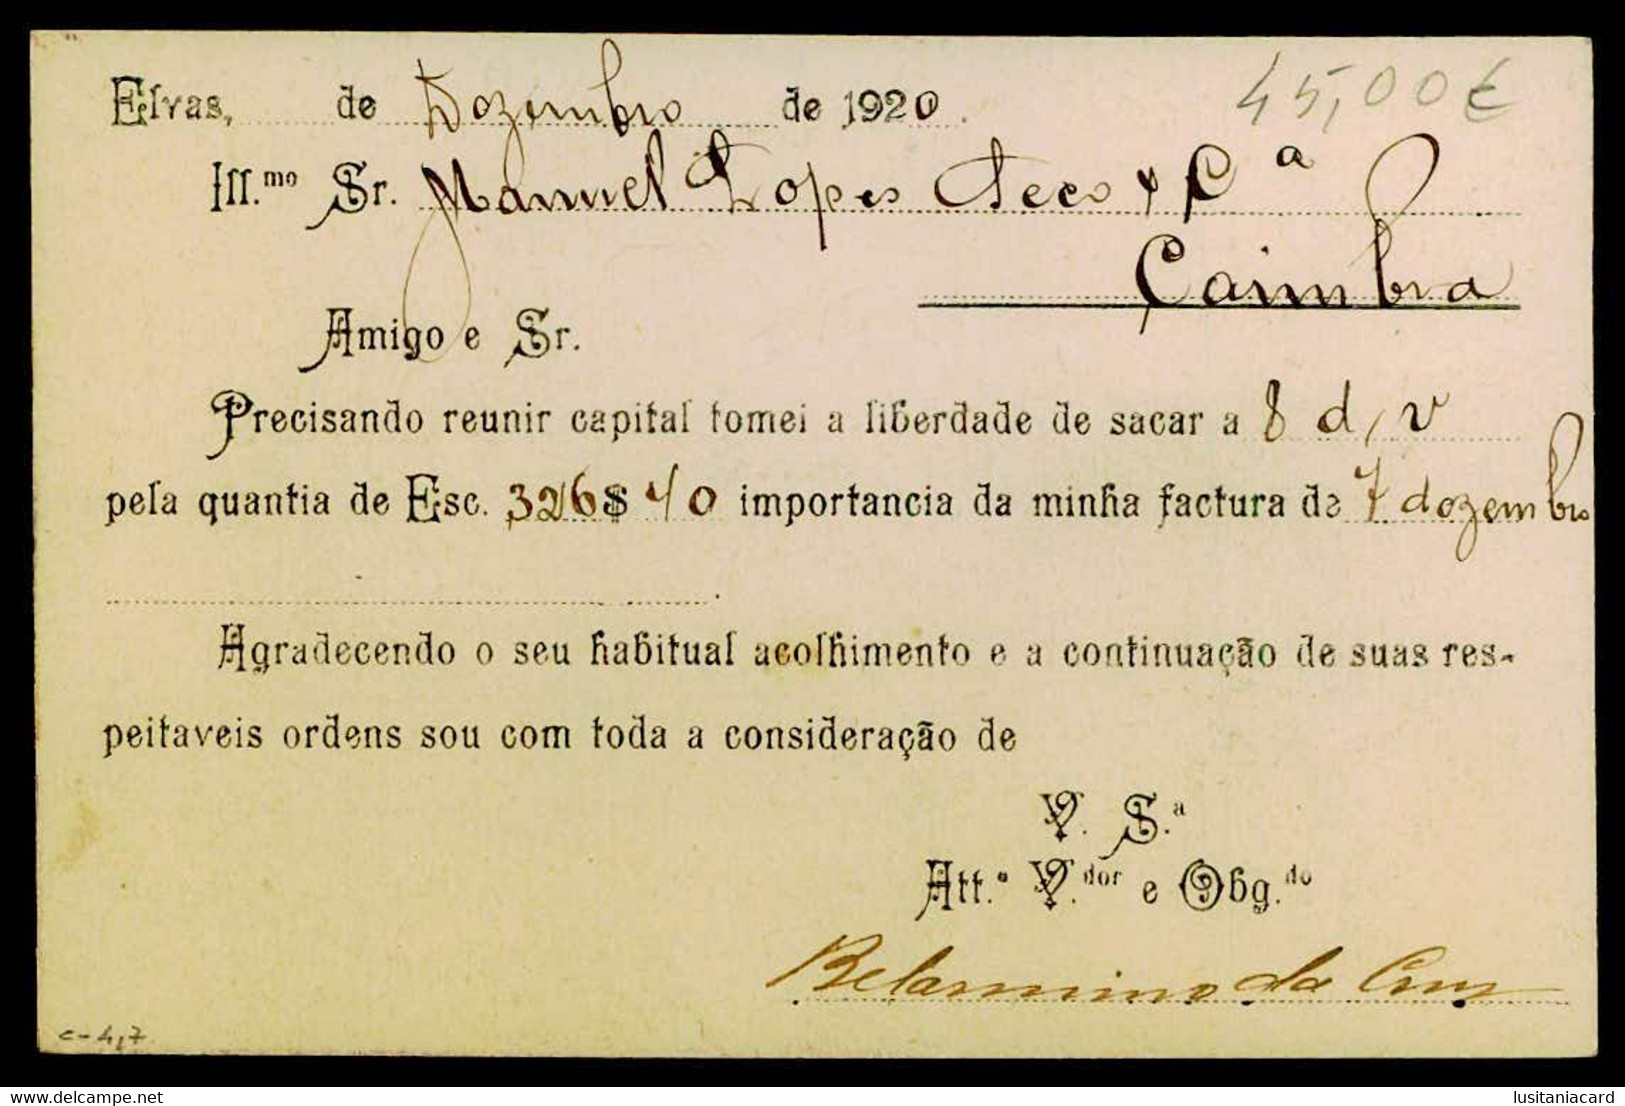 Elvas, de Dezembro de 1920.
45,00€
Ill.mo Sr. Manuel Lopes Seco & Cª
Coimbra
Amigo e Sr.
Precisando reunir capital tomei a liberdade de sacar a 8 d/v
pela quantia de Esc. 326$40 importancia da minha factura de 7 dezembro
Agradecendo o seu habitual acolhimento e a continuação de suas res-
peitaveis ordens sou com toda a consideração de
V. S.ª
Att.º V.dor e Obg.do
Belarmino da Cruz
c-4,7
www.delcampe.net
lusitaniacard